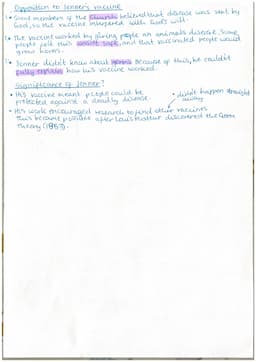 Opposition to Jenner's vaccine
• Some members of the Church believed that disease was sent by
God, so the vaccine interfered with God's will.
• The vaccine worked by giving people an animals disease. Some
people felt this wasn't safe, and that vaccinated people would
grow horns.
• Jenner didn't know about germs. Because of this, he couldn't
fully explain how his vaccine worked.
Significance of Jenner?
• His vaccine meant people could be
protected against a deadly disease.
• didn't happen straight
away
• His work encouraged research to find other vaccines
This became possible after Louis Pasteur discovered the Germ
Theory (1861).